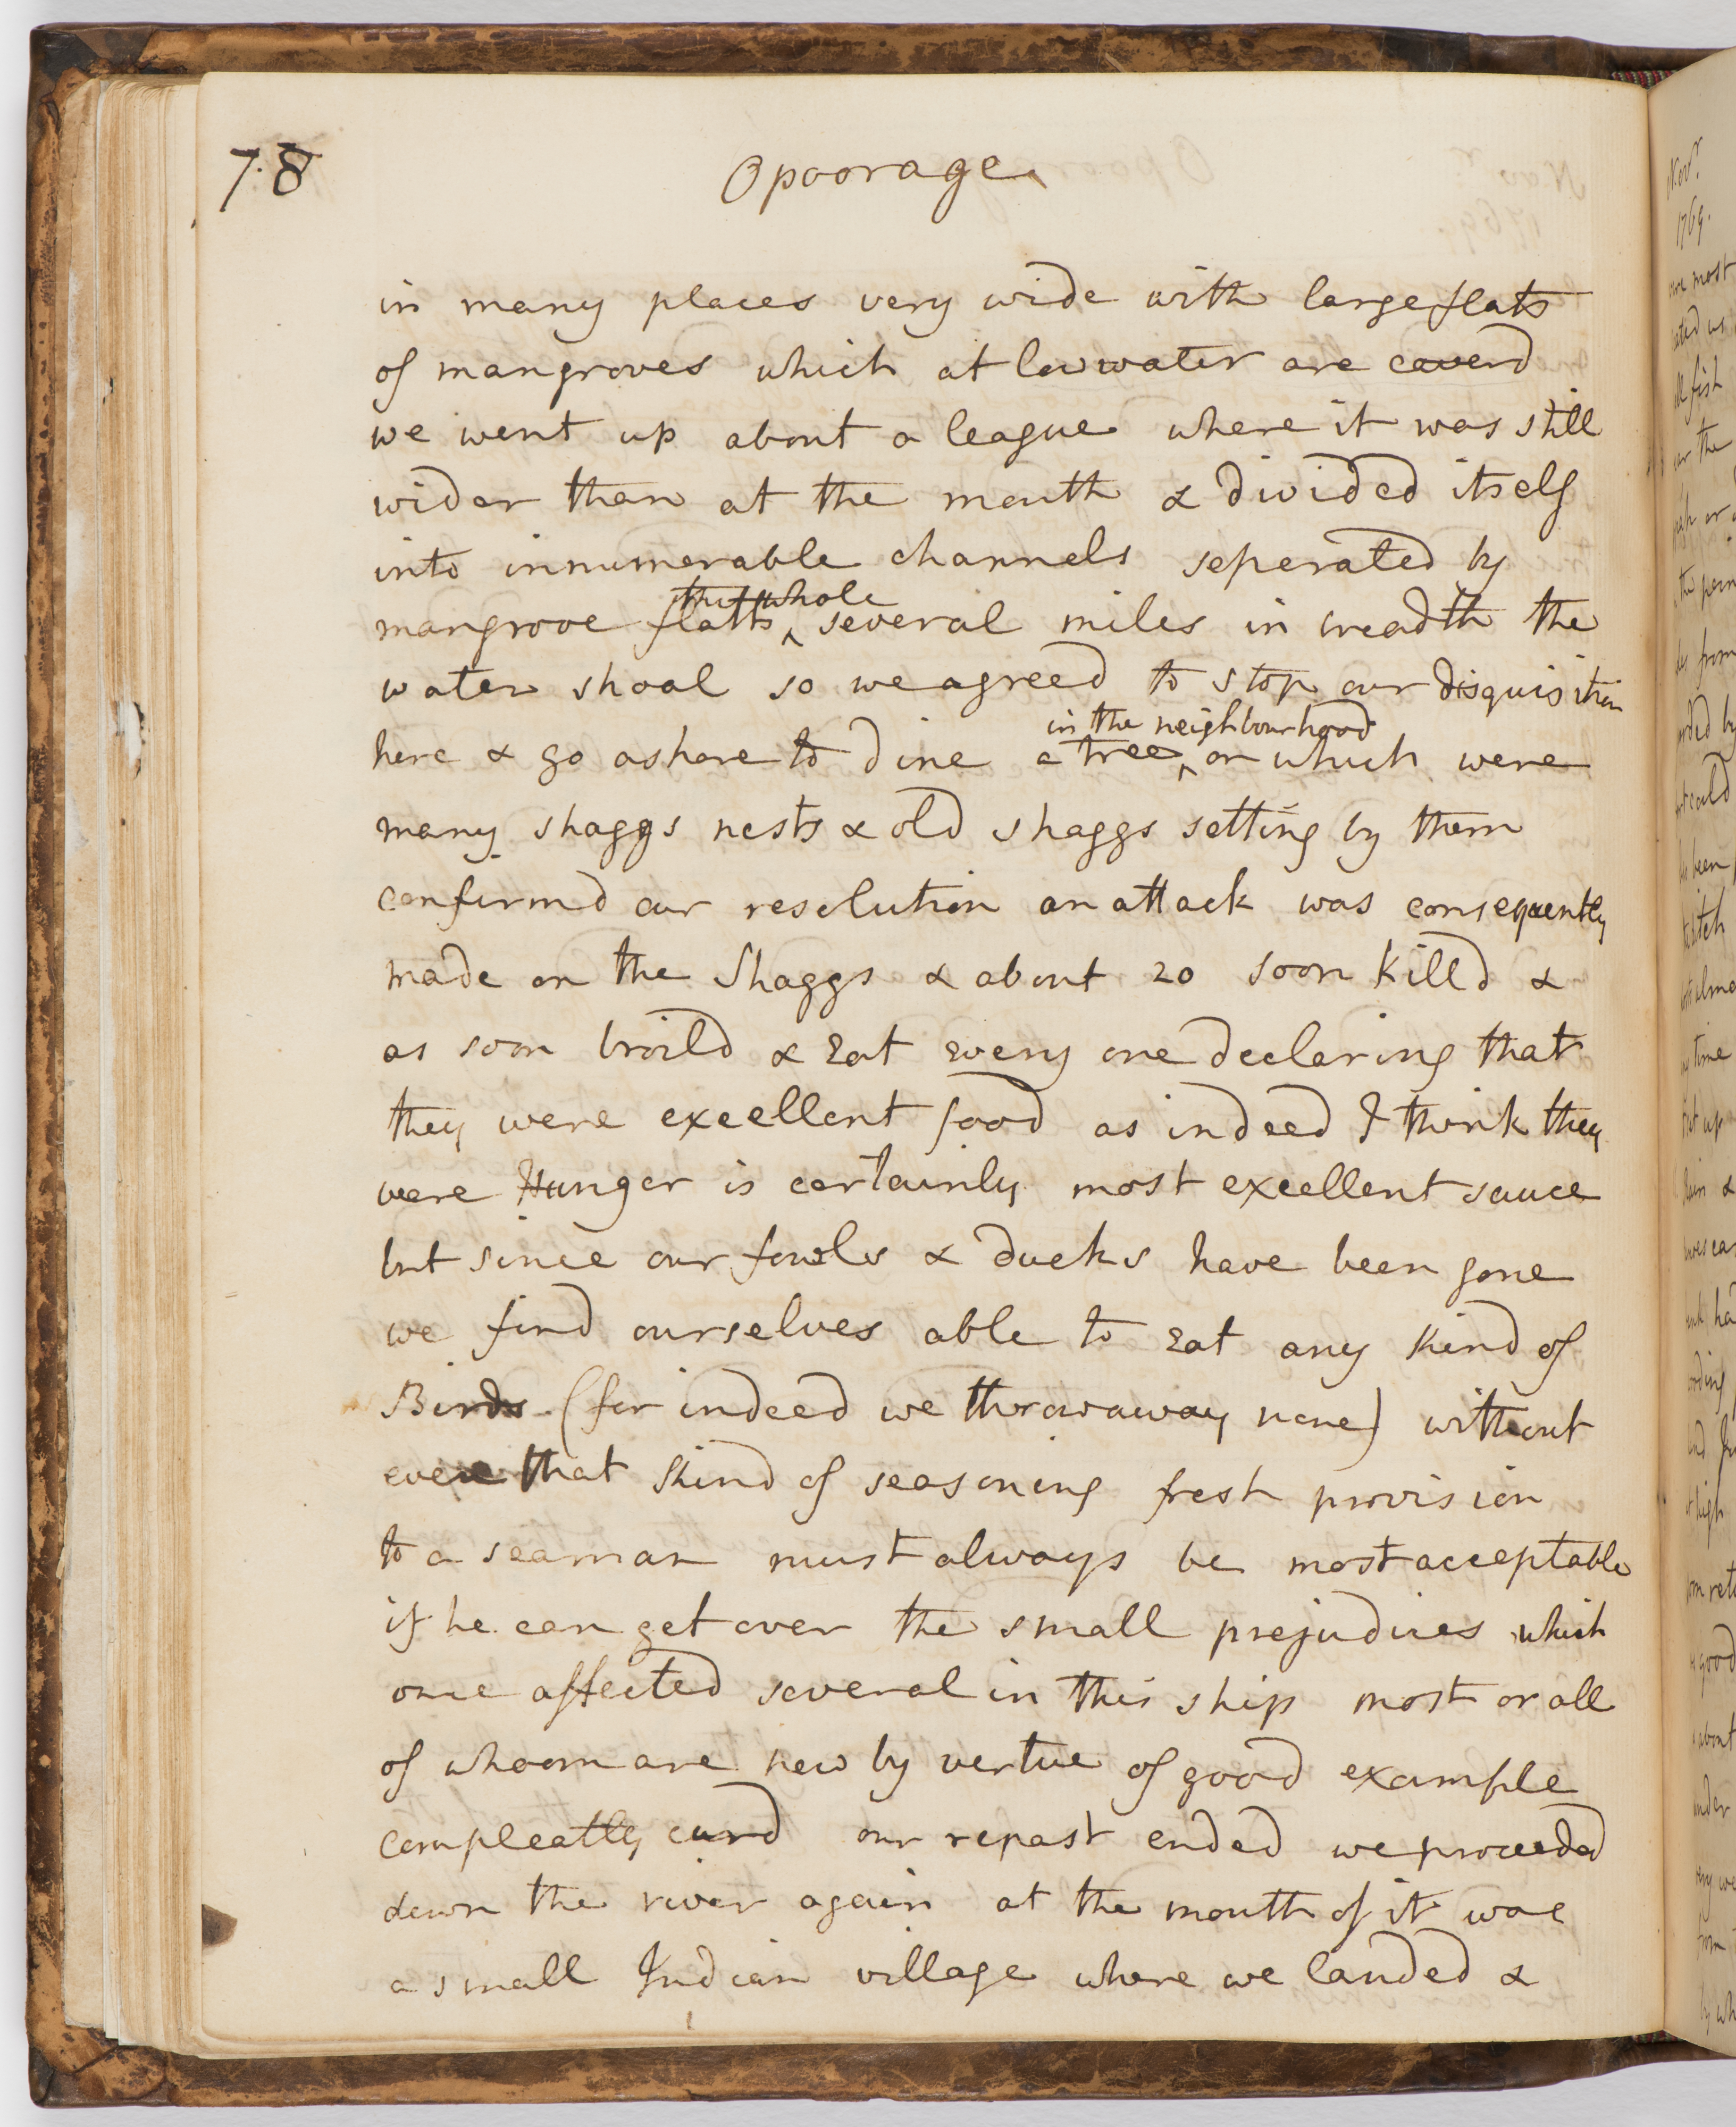 78
Opoorage
in many places very wide with large flats
of mangroves which at low water are coverd
we went up about a league where it was still
wider than at the mouth & divided itself
into innumerable channels seperated by
mangrove flatts the whole several miles in breadth the
water shoal so we agreed to stop our disquisition
here & go ashore to dine a tree in the neighbourhood on which were
many shaggs nests & old shaggs setting by them
confirmd our resolution an attack was consequently
made on the Shaggs & about 20 soon killd &
as soon broild & eat every one declaring that
they were excellent food as indeed I think they
were Hunger is certainly most excellent sauce
but since our fowls & ducks have been gone
we find ourselves able to eat any kind of
Birds (for indeed we throw away none) without
even that kind of seasoning fresh provision
to a seaman must always be most acceptable
if he can get over the small prejudices which
once affected several in this ship most or all
of whoom are now by vertue of good example
compleatly curd our repast ended we proceeded
down the river again at the mouth of it was
a small Indian village where we landed &
Novr.
1769.